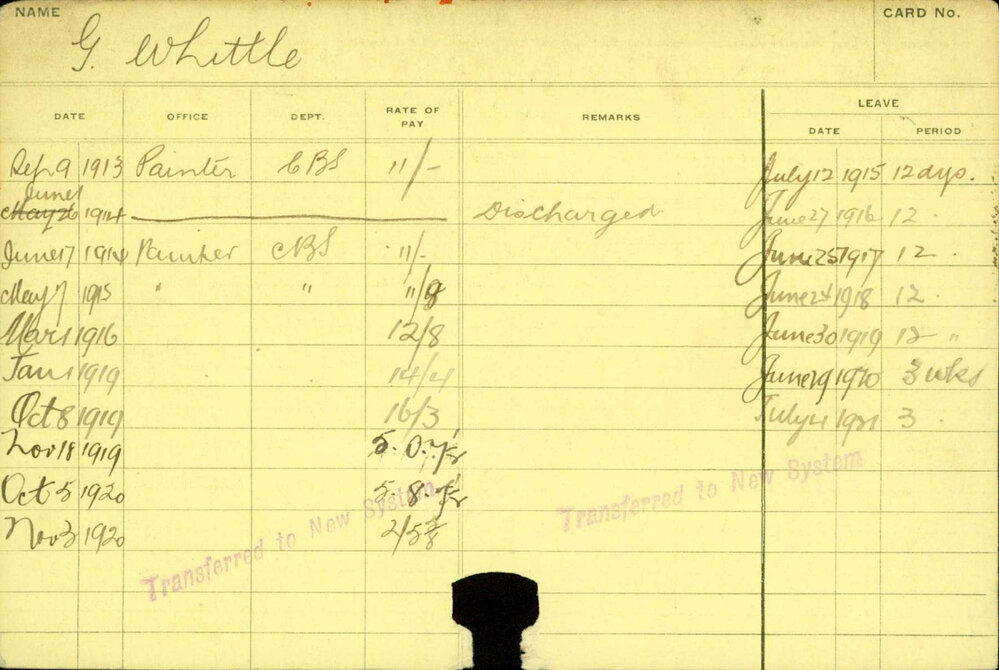 NAME
CARD No.
G. Whittle
DATE OFFICE DEPT. RATE OF PAY REMARKS LEAVE
DATE PERIOD
Sep. 9 1913 Painter CBS 11/- July 12 1915 12 dys.
June 1
May 26 1914 Discharged June 27 1916 12 "
June 17 1914 Painter CBS 11/- June 25 1917 12 "
May 7 1915 " " 11/8 June 24 1918 12 "
Mar 1 1916 12/8 June 30 1919 12 "
Jan 1 1919 14/4 June 29 1920 3 wks
Oct 8 1919 16/3 July 4 1921 3 "
Nov 18 1919 5. 0.
Oct 5 1920 5. 8.
Nov 3 1920 2/5
Transferred to New System
Transferred to New System